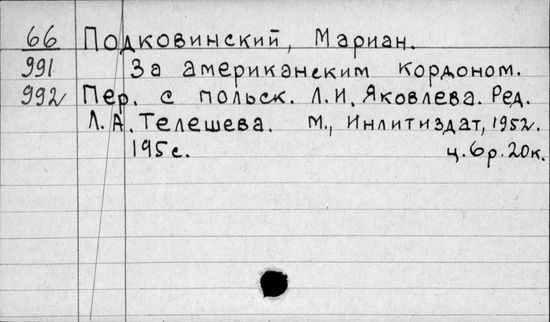 66 Подковинский, Мариан.
991 За американским кордоном.
992 Пер. с польск. Л.И. Яковлева. Ред.
Л.А. Телешева. М., Инлитиздат, 1952.
195 с. ц. 6 р. 20 к.